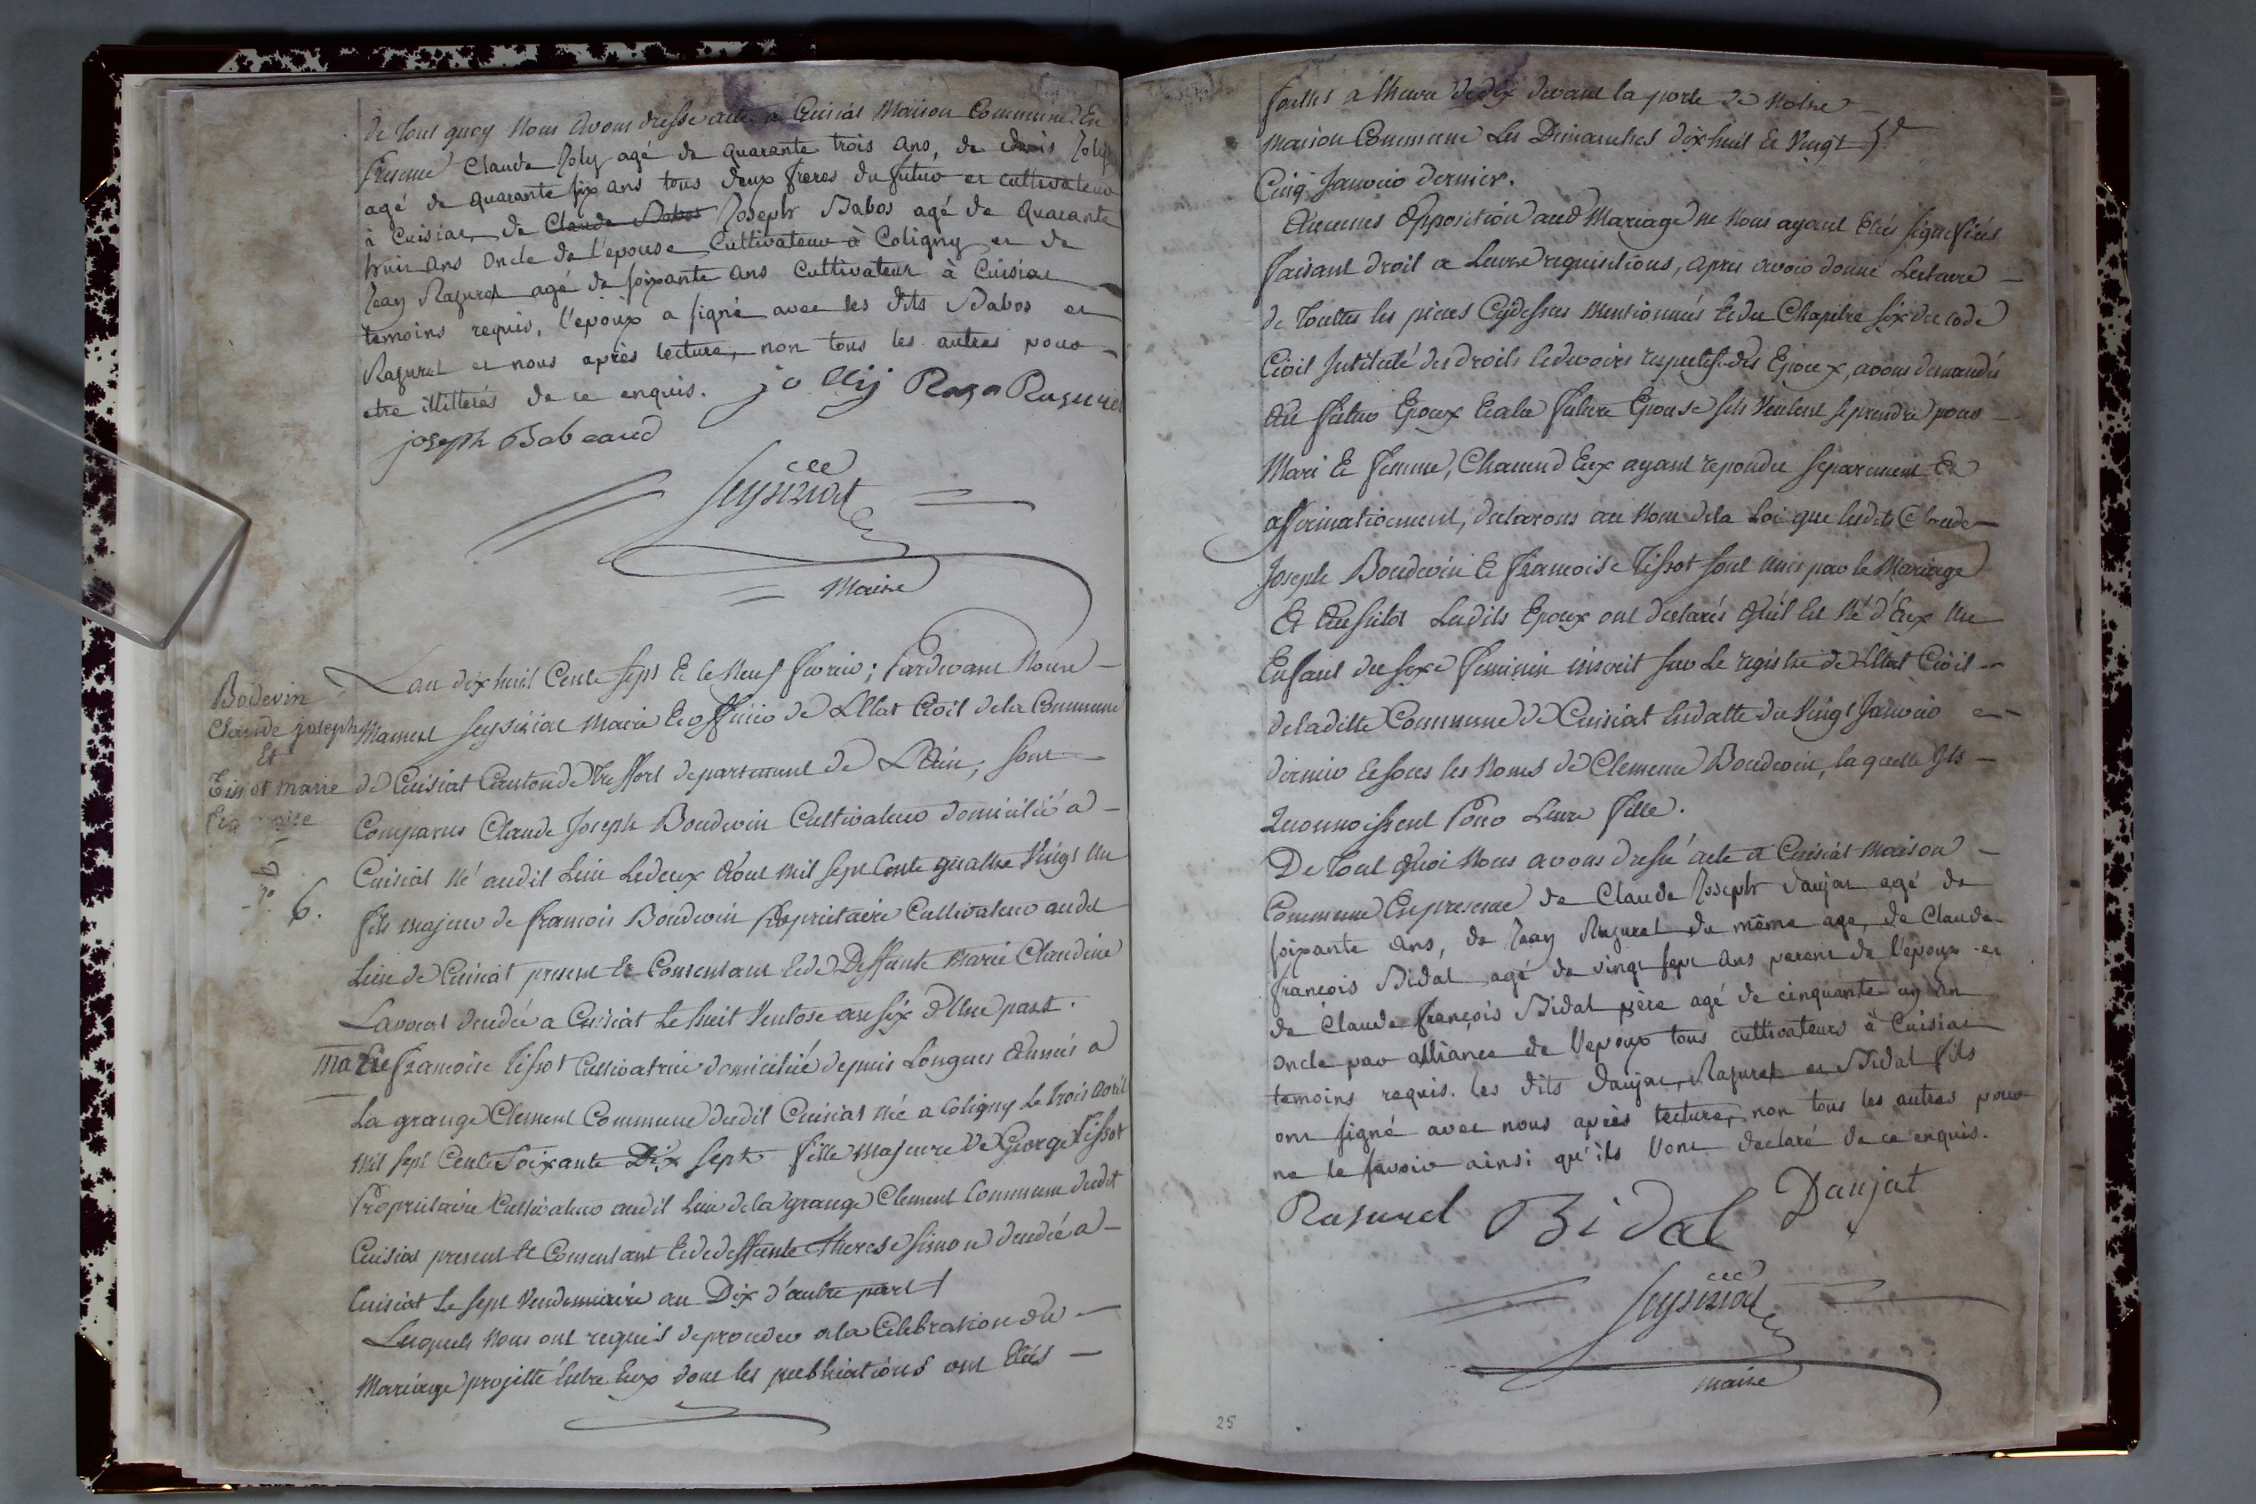 de Tout quoy Nous Avons dressé acte a Cuisiat Maison Commune En
presence Claude Joly agé de quarante trois ans, de Denis Joly
agé de quarante six ans tous deux freres du futur et cultivateur
à Cuisiat, de Claude Babos Joseph Babos agé de quarante
huit ans oncle de l'epouse Cultivateur à Coligny et de
Jean Razurel agé de soixante ans Cultivateur à Cuisiat
temoins requis, l'epoux a signé avec les dits Babos et
Razurel et nous après lecture, non tous les autres pour
etre illitterés de ce enquis. jolly Raza Razurel
joseph Babeaud
Seyssiriat
Maire
Bodevin
Claude joseph
Et
Tissot marie
6.
Lan dix huit Cents Sept Et le Neuf fevrier; Pardevant Nous
Mament Seyssiriat Maire Et officier de LEtat Civil de la Commune
de Cuisiat Canton de Treffort departement de L'Ain, sont
Comparus Claude Joseph Boudevin Cultivateur domicilié a
Cuisiat Né audit Lieu Le deux Aout mil Sept Cents quattre Vingt un
fils majeur de francois Boudevin proprietaire Cultivateur audit
Lieu de Cuisiat present Et Consentant Et de Deffunte Marie Claudine
Lavocat decedée a Cuisiat Le huit Ventose an Six d'Une part.
Marie francoise Tissot Cultivatrice domiciliée depuis Longues Années a
La grange Clement Commune dudit Cuisiat née a Coligny Le trois avril
mil Sept Cents Soixante Dix Sept fille majeure De George Tissot
Proprietaire Cultivateur audit Lieu de la grange Clement Commune dudit
Cuisiat present Et Consentant Et de deffunte Therese Simon decedée a
Cuisiat Le Sept Vendemiaire an Dix d'autre part
Lesquels Nous ont requis de proceder a la Celebration du
Mariage projetté Entre Eux dont les publications ont Etés
faittes a lheure de dix devant la porte de Notre
maison Commune Les Dimanches dix huit Et Vingt
Cinq Janvier dernier.
Aucunes Opposition audt Mariage ne Nous ayant Etés signifiées
faisant droit a Leurs requisitions, apres avoir donné Lecture
de Touttes les pieces Cydessus Mentionnées Et du Chapitre Six du code
Civil Intitulé des droits Et devoirs respectifs des Epoux, avons demandés
Au futur Epoux Et a la future Epouse Sils Veulent se prendre pour
Mari Et femme, Chacun d'Eux ayant repondu Separement Et
affirmativement, declarons au Nom de la Loi que lesdits Claude
Joseph Boudevin Et Francoise Tissot sont Unis par le Mariage
Et Ausitot Lesdits Epoux ont declarés qu'il Est Né d'Eux Un
Enfant du Sexe feminin inscrit Sur Le registre de LEtat Civil
de ladite Commune de Cuisiat En datte du Vingt Janvier
dernier Et sous les Noms de Clemence Boudevin, laquelle Ils
reconnoissent Pour Leure fille.
De Tout Quoi Nous avons dressé acte a Cuisiat maison
Commune En presence de Claude Joseph Daujat agé de
soixante ans, de Jean Razurel du même age, de Claude
françois Bidal agé de vingt sept ans parent de l'epoux et
de Claude françois Bidal père agé de cinquante un an
oncle par alliance de l'epoux tous cultivateurs à Cuisiat
temoins requis. les dits Daujat, Razurel et Bidal fils
ont signé avec nous après lecture, non tous les autres pour
ne le savoir ainsi qu'ils l'ont declaré de ce enquis.
Razurel Bidal Daujat
Seyssiriat
maire
25